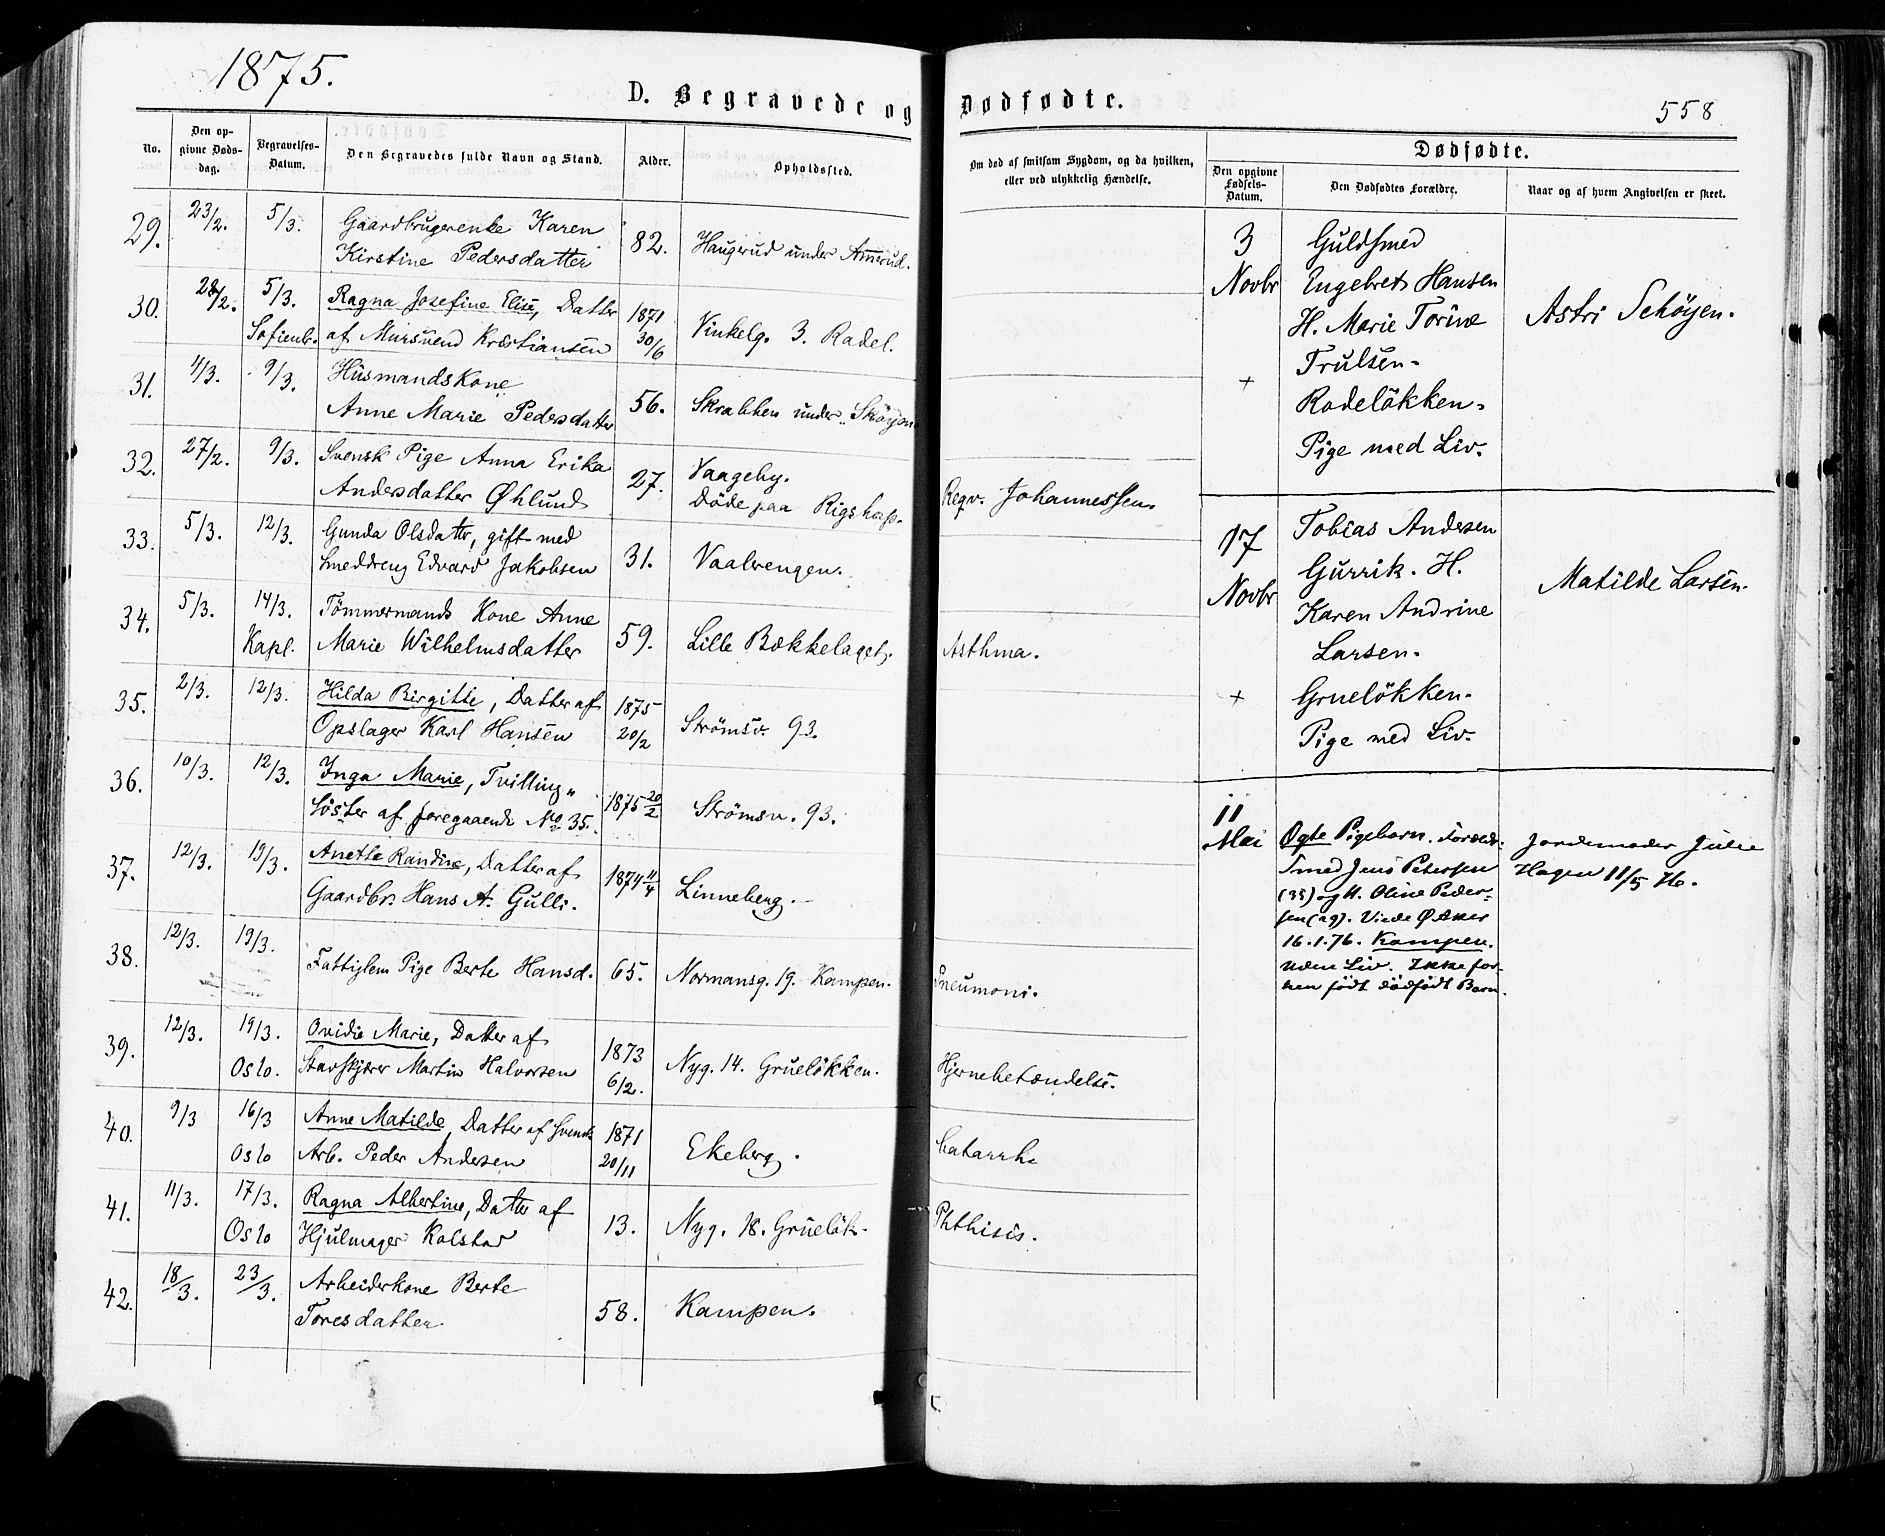 1875.
D. Begravede og Dødfødte.
558
No.
Den op-
givne Døds-
dag.
Begravelses-
Datum.
Den Begravedes fulde Navn og Stand.
Alder.
Opholdssted.
Om død af smitsom Sygdom, og da hvilken,
eller ved ulykkelig Hændelse.
Dødfødte.
Den opgivne
Fødsels-
Datum.
Den Dødfødtes Forældre.
Naar og af hvem Angivelsen er skeet.
29. 23/2. 5/3. Gaardbrugerenke Karen
Kirstine Pedersdatter 82. Haugerud under Ammerud.
30. 28/2. 5/3. Ragna Josefine Elise, Datter 1871
Sofienb. af Mursvend Kristiansen 30/6 Vinkelg. 3. Rodel.
31. 4/3. 9/3. Husmandskone
Anne Marie Pedersdatter 56. Skrabben under Skøyen
32. 27/2. 9/3. Svensk Pige Anna Erika
Andersdatter Øhlund 27. Vaageby.
Döde paa Rigshosp. Reqv. Johannessen.
33. 5/3. 12/3. Gunda Olsdatter, gift med
Smeddreng Edvard Jakobsen 31. Vaalerengen.
34. 5/3. 14/3. Tömmermands Kone Anne
Kapl. Marie Wilhelmsdatter 59. Lille Bækkelaget. Asthma.
35. 2/3. 12/3. Hilda Birgitte, Datter af 1875
Opslager Karl Hansen 20/2 Strömsv. 93.
36. 10/3. 12/3. Inga Marie, Tvilling„
söster af foregaaende No 35. 1875 20/2 Strömsv. 93.
37. 12/3. 19/3. Anette Randine, Datter af
Gaardbr. Hans A. Gulli. 1874 11/4 Linneberg.
38. 12/3. 19/3. Fattiglem Pige Berte Hansd. 65. Normansg. 19. Kampen. Pneumoni.
39. 12/3. 19/3. Ovidie Marie, Datter af 1873
Oslo. Martin Halvorsen 6/2. Nyg. 14. Grueløkken. Hjernebetændelse.
40. 9/3 16/3 Anne Matilde, Datter af Svensk 1871
Oslo Arb. Peder Andersen 20/11 Ekeberg. Catarrh.
41. 11/3. 17/3. Ragna Albertine, Datter af
Oslo Hjulmager Kolstad 13. Nyg. 18. Grueløk. Phthisis.
42. 18/3. 23/3. Arbeiderkone Berte
Toresdatter. 58. Kampen.
3
Novbr
+
Guldsmed
Engebret Hansen
H. Marie Torine
Trulsen.
Rodeløkken.
Pige med Liv.
Astri Schöyen.
17
Novbr
+
Tobias Andersen
Gurrik. H.
Karen Andrine
Larsen.
Grueløkken.
Pige med Liv.
Matilde Larsen.
11
Mai
Ægte Pigebarn. Foræld:
Smed Jens Petersen
(35) og H. Oline Peder-
sen (29). Viede Ø Aker
16.1.76. Kampen.
Uden Liv. Ikke för-
hen født dødfødt Barn.
Jordemoder Julie
Hagen 11/5 76.